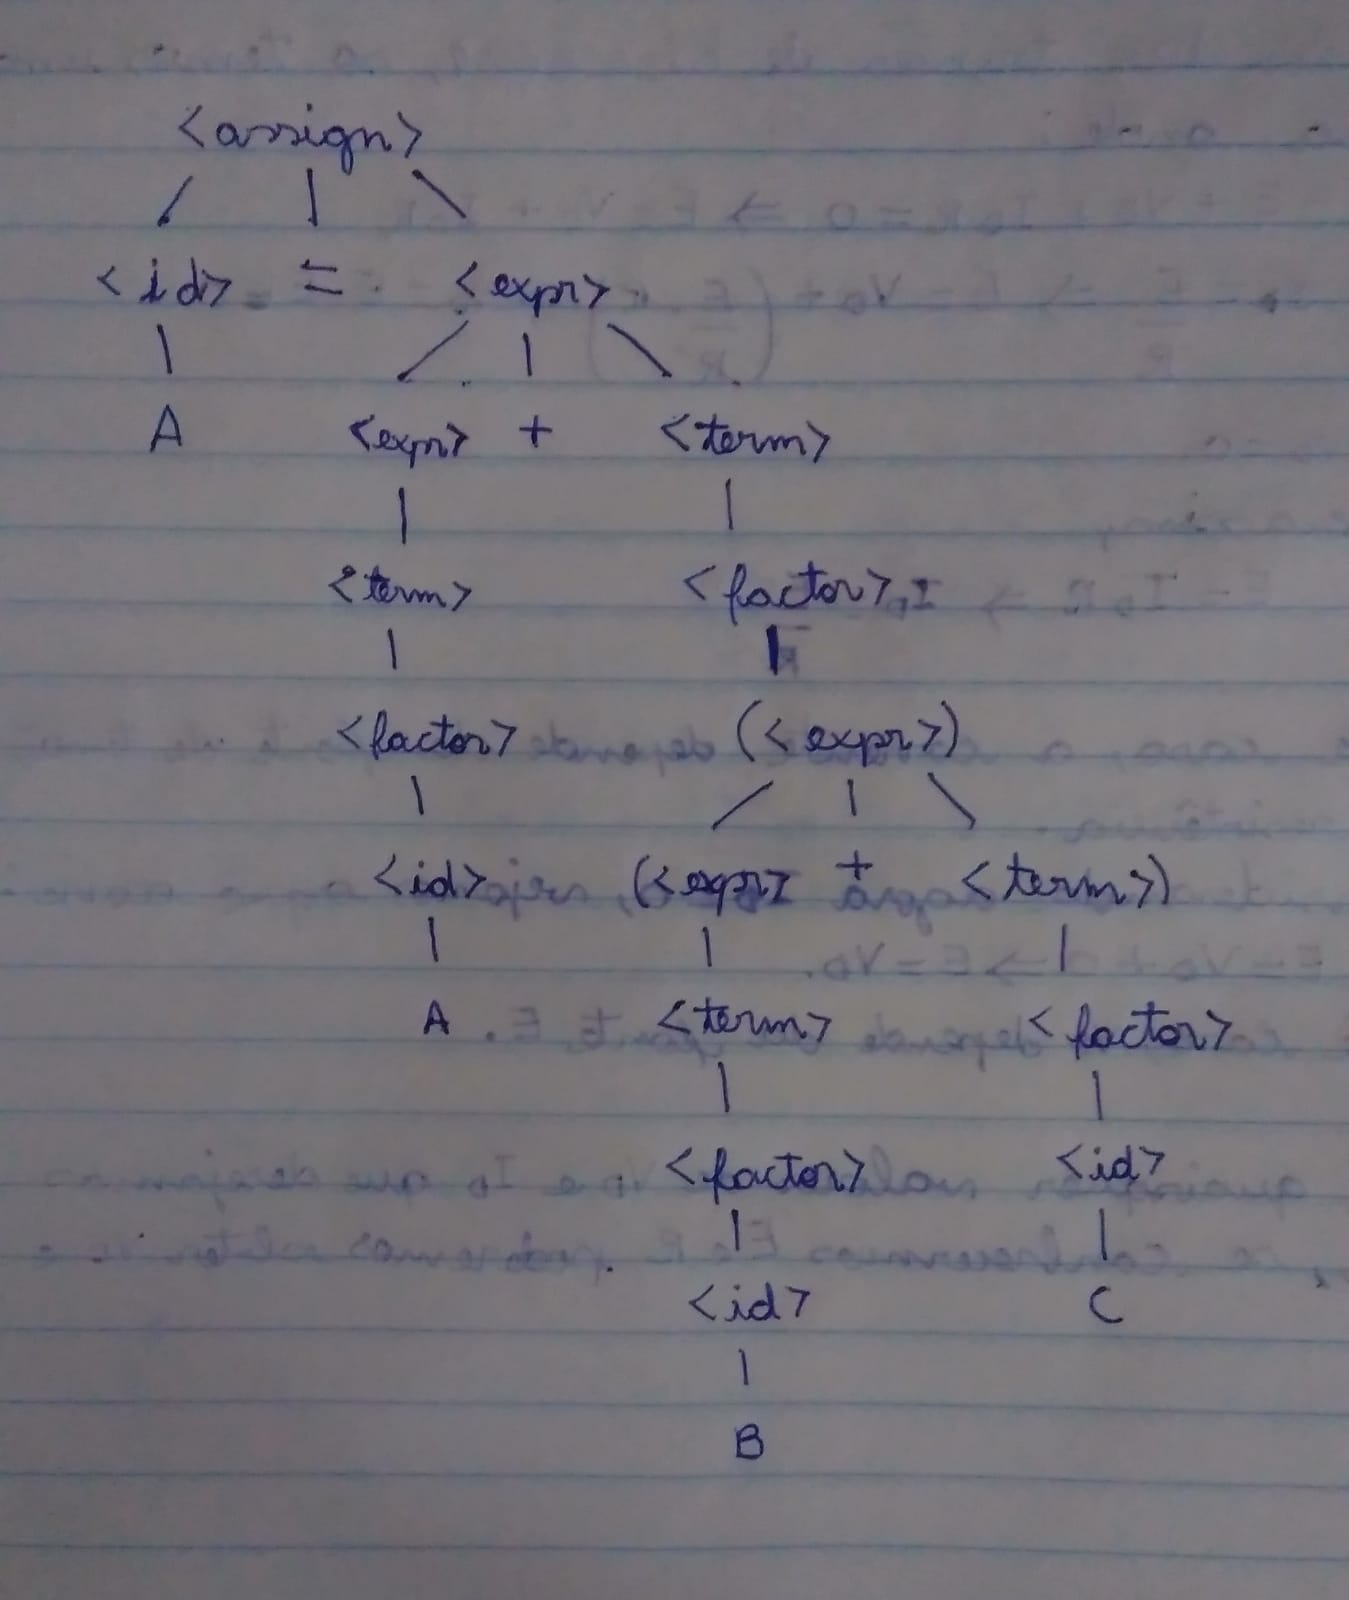 <assign>
<id> = <expr>
A <expr> + <term>
<term> <factor>
<factor> (<expr>)
<id> (<expr> + <term>)
A <term> <factor>
<factor> <id>
<id> C
B